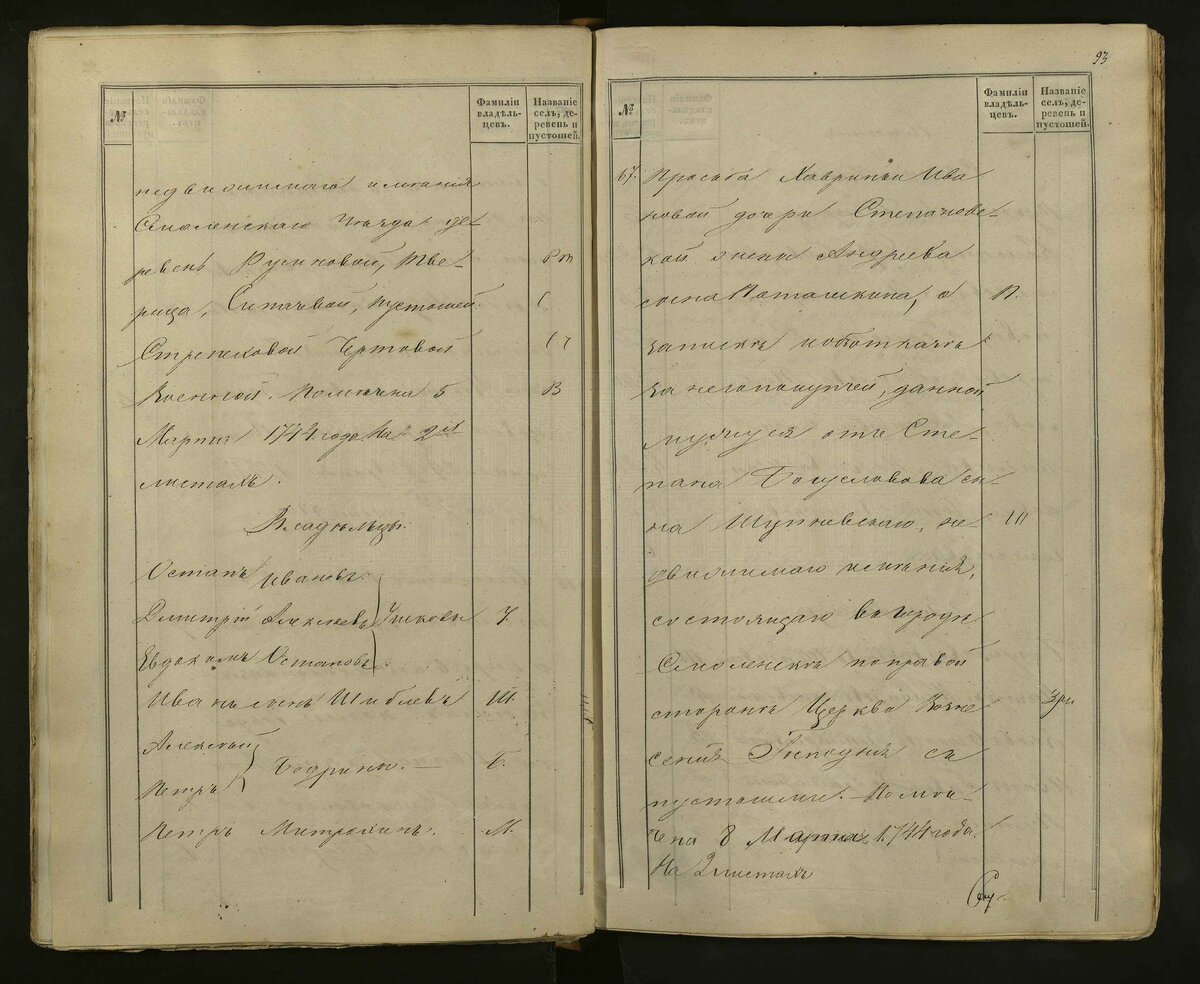 №
Фамиліи владѣль-цевъ.
Названіе селъ, де-ревень и пустошей.
недвижимаго имѣнія
Смоленскаго Уѣзда де-
ревень Русиновой, Тве-
рица, Сипачевой, пустошей
Чертовой
Военной. Помѣчена 5 В
Марта 1744 года. На 2хъ
листахъ.
Владѣльцы.
Остапъ Ивановъ
Дмитрій Алексѣевъ
Евдокимъ Остаповъ
Иванъ сынъ Шиблевъ Ш.
Алексѣй
Петръ
Бодрины. — Б.
Петръ Митрохинъ. М.
93
№
Фамиліи владѣль-цевъ.
Названіе селъ, де-ревень и пустошей.
67. Прозьба Хавриньи Ива
новой дочери Степанове-
кой жены Андреева
сына Поташкина, о П.
запискѣ
за него покупчей, данной
мужу ея отъ Сте-
пана Богуславова сы-
на Шупневскаго, не- Ш
движимаго имѣнія,
состоящаго въ городѣ
Смоленскѣ по правой
сторонѣ Церкви Возне
сенія Господня съ
пустошми. Помѣ-
чена 8 Марта 1744 года.
На 2 листахъ